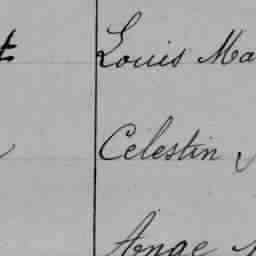 Louis Ma
Celestin
Ange